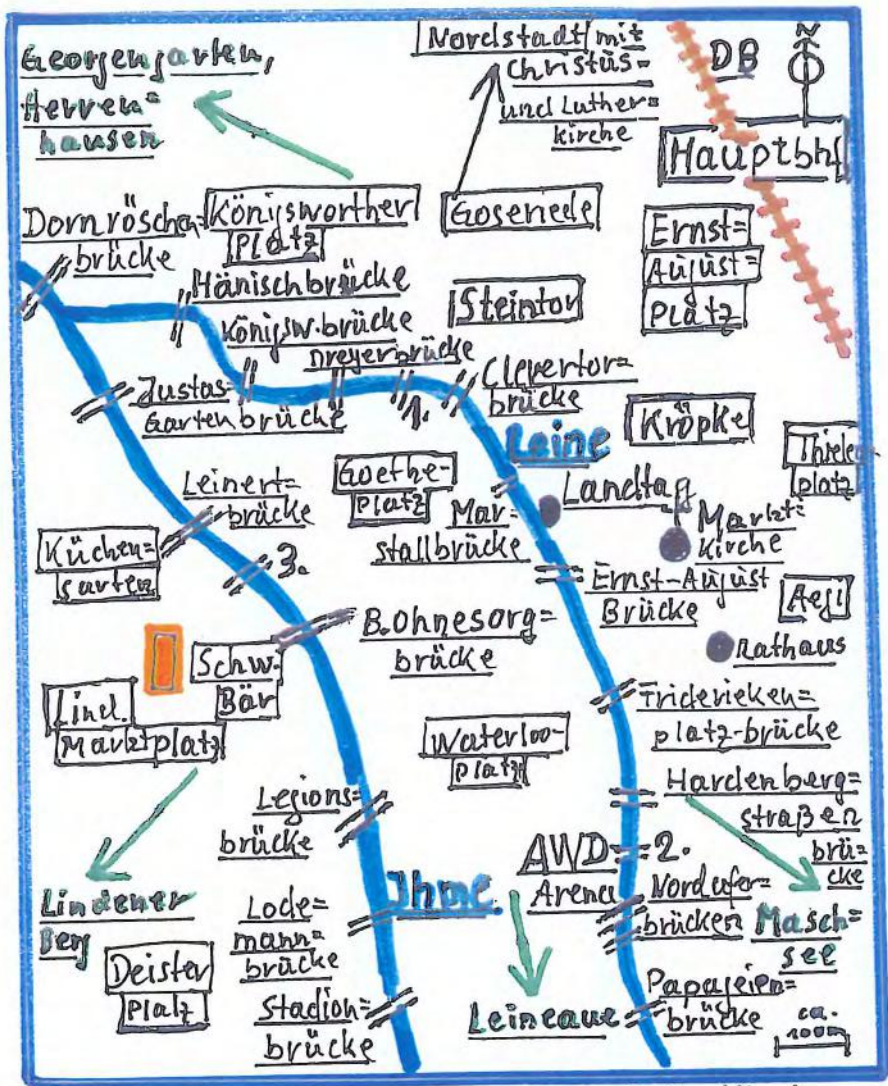 Georgengarten,
Herren=
hausen
Nordstadt mit
Christus=
und Luther=
kirche
DB
N
Hauptbhf
Dornröschen=
brücke
Königsworther
Platz
Goseriede
Ernst=
August=
Platz
Hänischbrücke
Königsw.brücke
Dreyerbrücke
Steintor
Justus=
Gartenbrücke
1.
Clevertor=
brücke
Leine
Kröpke
Thielen
platz
Leinert=
brücke
Goethe-
platz
Mar=
stallbrücke
Landtag
Markt=
Kirche
Küchen=
garten
3.
Ernst-August
Brücke
Aegi
Rathaus
B.Ohnesorg=
brücke
Schw.
Bär
Lind.
Marktplatz
Waterloo-
platz
Friderieken=
platz-brücke
Legions=
brücke
Hardenberg=
straßen
brü=
cke
AWD
Arena
2.
Nordufer=
brücken
Masch=
see
Ihme
Lindener
Berg
Lode=
mann=
brücke
Deister
Platz
Stadion=
brücke
Leineaue
Papageien=
brücke
ca.
100m